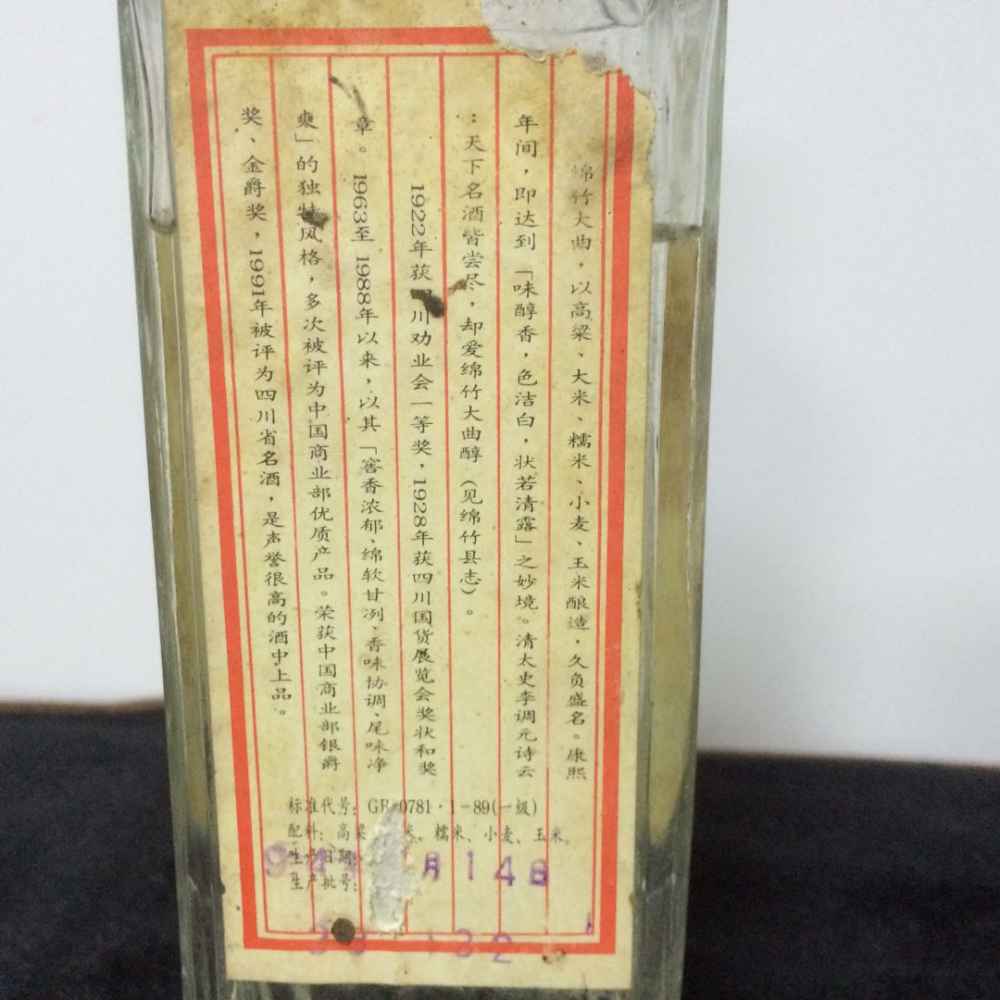 绵竹大曲，以高粱、大米、糯米、小麦、玉米酿造，久负盛名。康熙
年间，即达到「味醇香，色洁白，状若清露」之妙境。清太史李调元诗云
：天下名酒皆尝尽，却爱绵竹大曲醇（见绵竹县志）。
1922年获四川劝业会一等奖，1928年获四川国货展览会奖状和奖
章。1963至1988年以来，以其「窖香浓郁、绵软甘冽、香味协调、尾味净
爽」的独特风格，多次被评为中国商业部优质产品。荣获中国商业部银爵
奖、金爵奖，1991年被评为四川省名酒，是声誉很高的酒中上品。
标准代号：GB 10781·1-89(一级)
配料：高粱、大米、糯米、小麦、玉米。
生产日期：
月14日
生产批号：